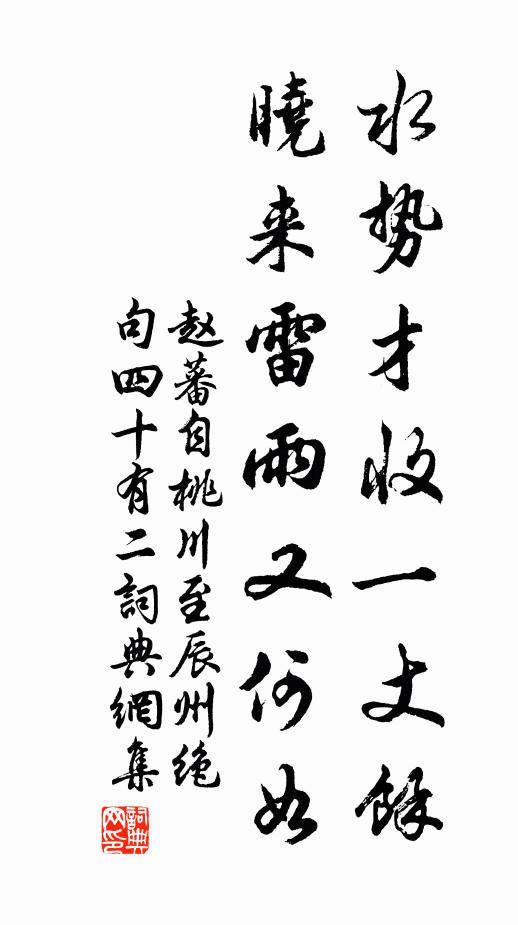 水势才收一丈餘
曉来雷雨又何如
赵蕃自桃川至辰州绝
句四十有二詞典網集
詞典
网印